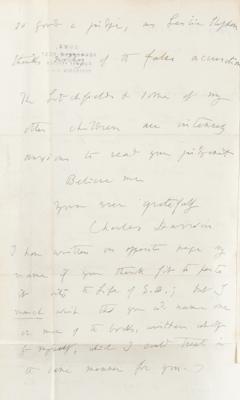 so good a judge, as Leslie Stephen
thinks of the false accusation
The Litchfields & some of my
other children are intensely
anxious to read your
Believe me
Yours ever gratefully
Charles Darwin
I have written on opposite page my
name if you think fit to paste
it into the Life of E.D.; but I
much wish that you would name one
or more of the books, written wholly
by myself, which I could treat in
the same manner for you.